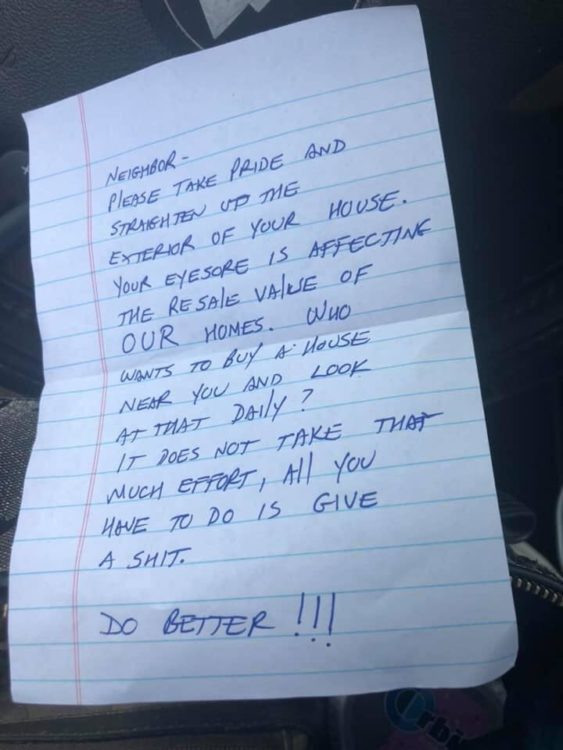 NEIGHBOR-
PLEASE TAKE PRIDE AND
STRAIGHTEN UP THE
EXTERIOR OF YOUR HOUSE.
YOUR EYESORE IS AFFECTING
THE RESALE VALUE OF
OUR HOMES. WHO
WANTS TO BUY A HOUSE
NEAR YOU AND LOOK
AT THAT DAILY?
IT DOES NOT TAKE THAT
MUCH EFFORT, All YOU
HAVE TO DO IS GIVE
A SHIT.
DO BETTER!!!
Orbi